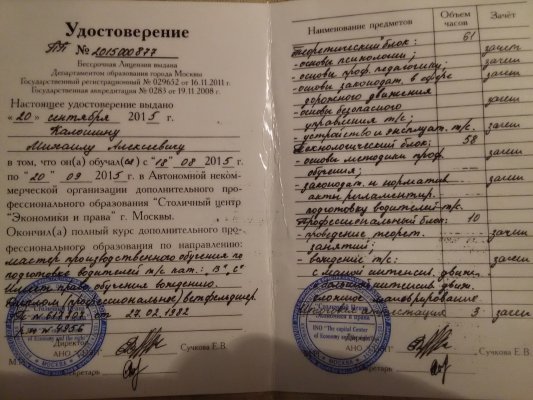 Удостоверение
ПП № 2015000877
Бессрочная Лицензия выдана
Департаментом образования города Москвы
Государственный регистрационный № 029652 от 16.11.2011 г.
Государственная аккредитация № 0283 от 19.11.2008 г.
Настоящее удостоверение выдано
«20» сентября 2015 г.
Калошину
Михаилу Алексеевичу
в том, что он(а) обучал(ся) с "18" 08 2015 г.
по "20" 09 2015 г. в Автономной неком-
мерческой организации дополнительного про-
фессионального образования "Столичный центр
"Экономики и права" г. Москвы.
Окончил(а) полный курс дополнительного про-
фессионального образования по направлению:
мастер производственного обучения по
подготовке водителей т/с кат.: "B", "C"
Имеет право обучения вождению.
(профессиональное) ветфельдшер.
от 27.02.1982
Директор
АНО Сучкова Е.В.
Секретарь
МОСКВА
Наименование предметов
Объем часов
Зачёт
Теоретический блок: 61
- основы психологии; зачет
- основы проф. педагогики; зачет
- основы законодат. в сфере зачет
дорожного движения
- основы безопасного зачет
управления т/с;
- устройство и эксплуат. т/с. зачет
Технологический блок: 58
- основы методики проф. зачет
обучения;
- законодат. и норматив зачет
акты регламентир.
подготовку водителей т/с.
Профессиональный блок: 10
- проведение теорет. зачет
занятий;
- вождение т/с: зачет
с малой интенсив. движ.
с большой интенсив. движ.
сложное маневрирование
аттестация 3 зачет
Экономики и права
INO "The capital Center
of Economy and the right"
Директор
АНО Сучкова Е.В.
Секретарь
МОСКВА